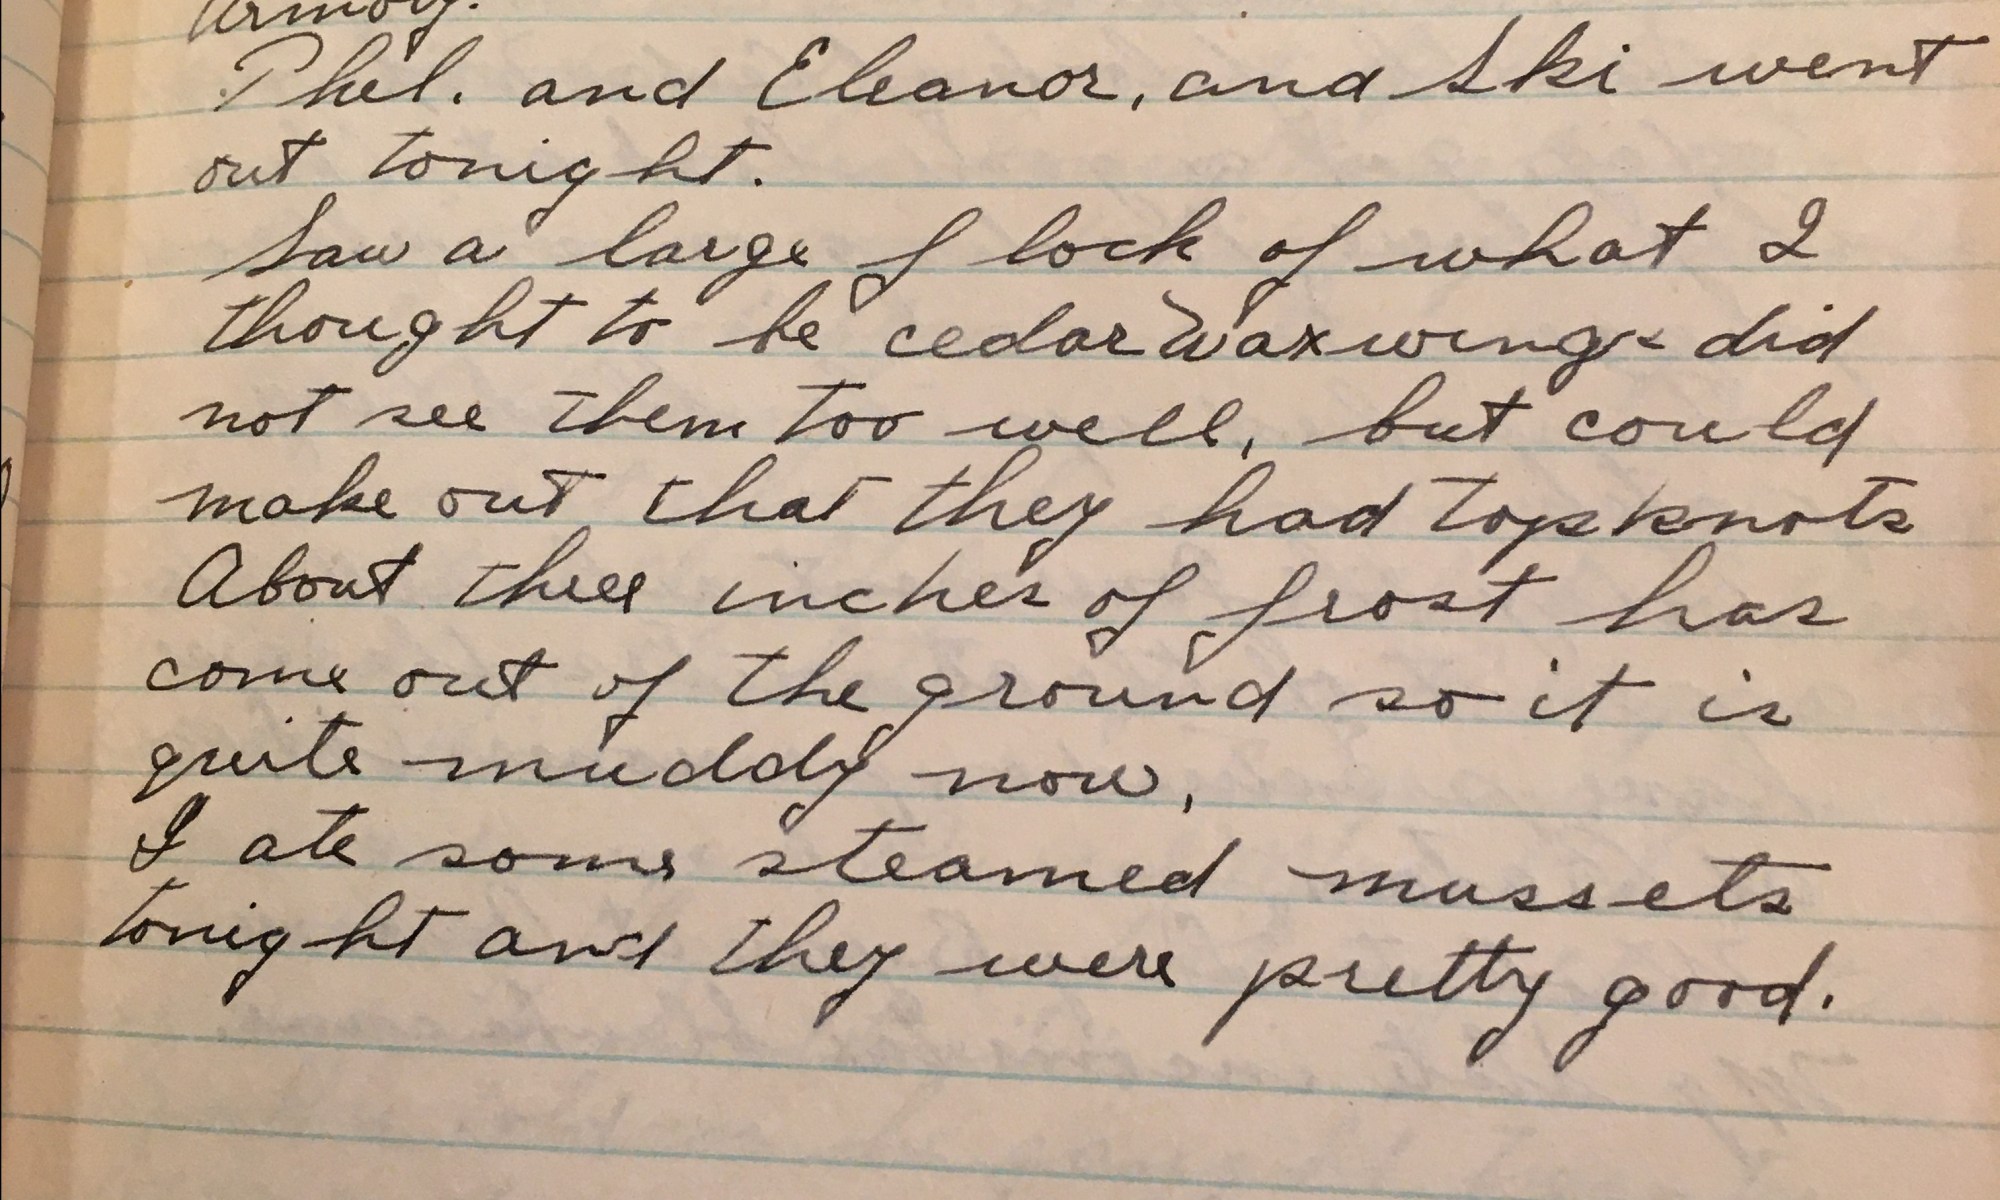 Armory.
Phel. and Eleanor, and Ski went
out tonight.
Saw a large flock of what I
thought to be cedar Waxwings did
not see them too well, but could
make out that they had topknots
About three inches of frost has
come out of the ground so it is
quite muddy now,
I ate some steamed mussets
tonight and they were pretty good.